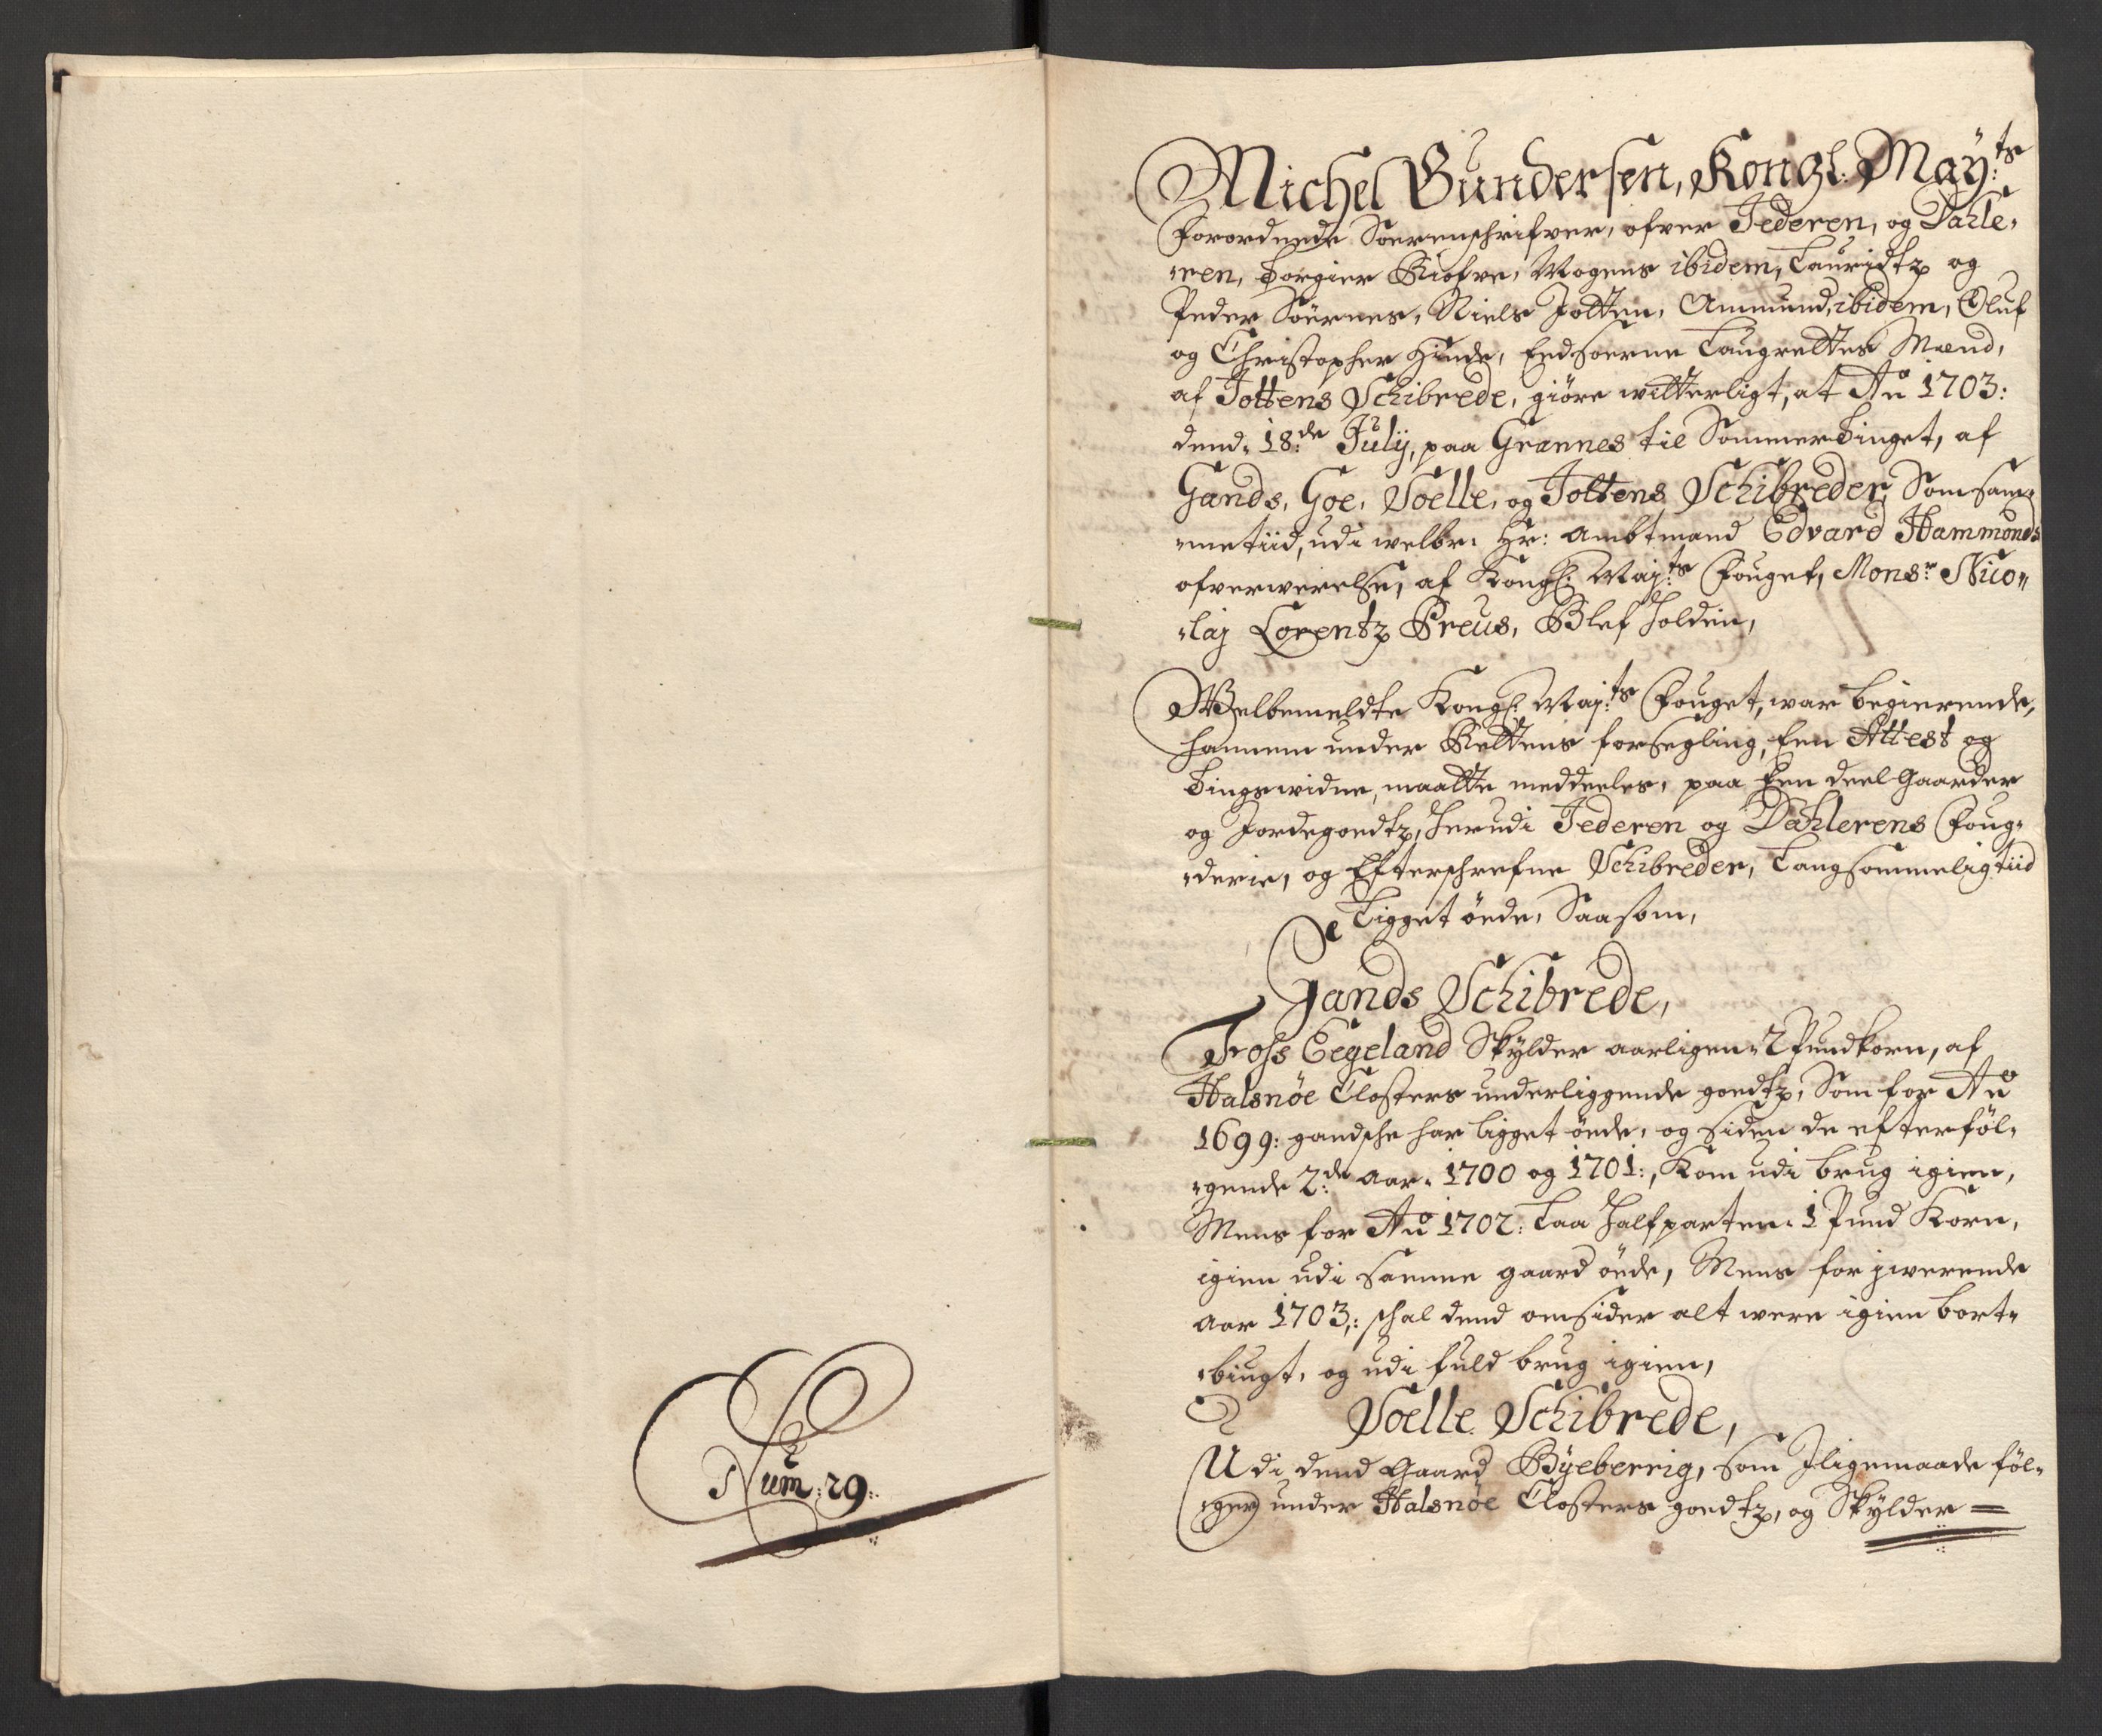 Num: 29.
Michel Gundersen, Kongl: May:ts
Forordnede Soerenschrifver, ofver Jederen, og Dahle-
-ren, Torgier Riofve, Mogens ibidem, Lauridtz og
Peder Soërnes, Niels Jotten, Ammund ibidem, Oluf
og Christopher Hinde, Eedsoerne Laugrettes Mænd,
af Jottens Schibrede, giöre witterligt, at Ao 1703:
dend. 18:de Julij, paa Grannes til Sommer Tinget, af
Gands, Goe, Soelle, og Jottens Schibreder, Som sam-
-metiid, udi welbr: Hr: Ambtmand Edvard Hammonds
ofverwerelse, af Kongl: Maj:ts Fouget, Monsr Nico-
-laj Lorentz Preus, Blef holden,
Welbemeldte Kongl: Maj:ts Fouget, war begierende,
hannem under Rettens forsegling, Een Attest og
Tingswidne, maatte meddeeles, paa Een deel Gaarder
og Jordegoedtz, her udi Jederen og Dahlerens Foug-
-derie, og Efterschrefne Schibreder, Langsommelig tiid
Ligget öede, Saasom,
Gands Schibrede,
Fross Eegeland Skylder aarligen 2 Pundkorn, af
Halsnöe Closters underliggende goedtz, Som for Ao
1699: gandsche har ligget öede, og siden de efterföl-
-gende 2:de aar 1700 og 1701:, Kom udi brug igien,
Mens for Ao 1702: Laa Halfparten 1 Pund Korn,
igien udi samme gaard öede, Mens for jwerende
aar 1703,: schal dend omsider alt were igien bort-
-biugt, og udi fuld brug igien,
Soelle Schibrede,
Udi dend Gaard Byeberrig, som Jligemaade föl-
-ger under Halsnöe Closters goedtz, og Skylder =